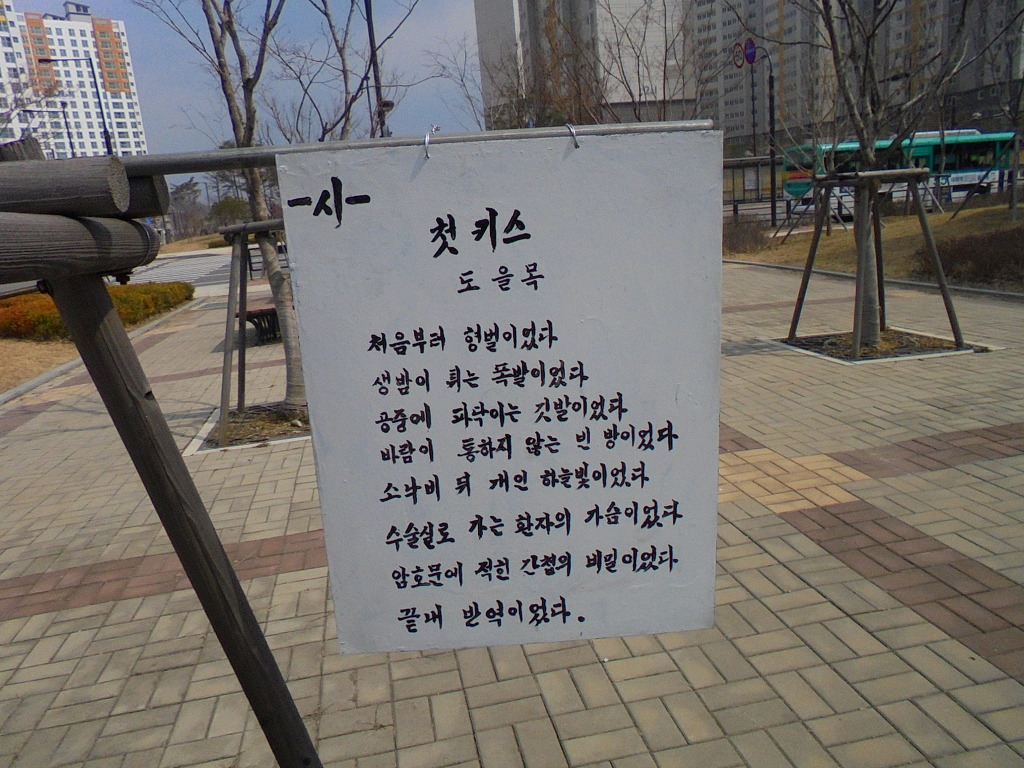 -시-
첫 키스
도 을 목
처음부터 형벌이었다
생밤이 튀는 폭발이었다
공중에 파닥이는 깃발이었다
바람이 통하지 않는 빈 방이었다
소낙비 뒤 개인 하늘빛이었다
수술실로 가는 환자의 가슴이었다
암호문에 적힌 간첩의 비밀이었다
끝내 반역이었다.